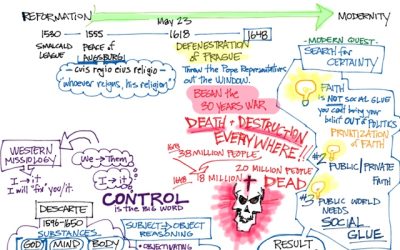 REFORMATION
May 23
MODERNITY
1530
1555
1618
1648
SMALCALD LEAGUE
PEACE of AUGSBURG!
DEFENESTRATION of PRAGUE
- cuis regio eius religio -
"whoever reigns, his religion"
Threw the Pope Representatives
out the WINDOW.
BEGAN the
30 YEARS WAR
DEATH + DESTRUCTION
EVERYWHERE!!
1618 38 MILLION PEOPLE
1648 18 MILLION
20 MILLION PEOPLE
DEAD
MODERN QUEST
SEARCH for
CERTAINTY
FAITH
is NOT SOCIAL GLUE
you can't bring your
belief OUT in POLITICS
PRIVATIZATION
of FAITH
PUBLIC / PRIVATE
FAITH
PUBLIC WORLD
NEEDS
SOCIAL
GLUE
RESULT
WESTERN
MISSIOLOGY
We → Them
I → it
I → it
I will "for" you/it.
CONTROL
is the BIG WORD
DESCARTE
1596-1650
SUBSTANCES
GOD
MIND
BODY
SUBJECT → OBJECT
REASONING
• OBJECTIVATING